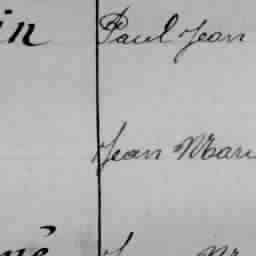 in Paul Jean
Jean Mari